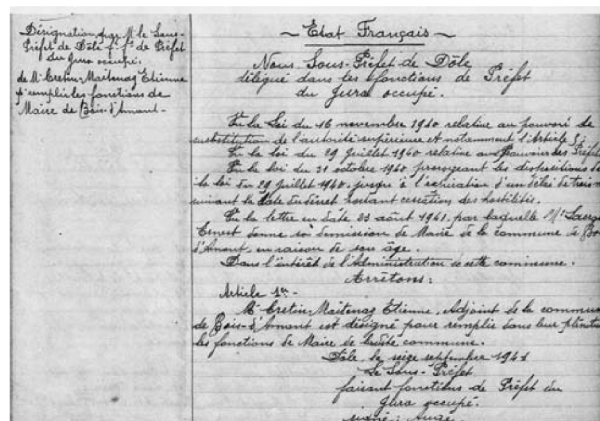 Désignation par M. le Sous-
Préfet de Dôle f.f. de Préfet
du Jura occupé.
de Mr Cretin-Maitenaz Etienne
pr remplir les fonctions de
Maire de Bois-d'Amont-
~ Etat Français ~
Nous Sous-Préfet de Dôle
délégué dans les fonctions de Préfet
du Jura occupé.
Vu la Loi du 16 novembre 1940 relative au pouvoir de
substitution de l'autorité supérieure et notamment l'Article
Vu la loi du 29 Juillet 1940 relative aux pouvoirs des Préfets
Vu la loi du 31 octobre 1940 prorogeant les dispositions de
la loi du 29 Juillet 1940, jusqu'à l'expiration d'un délai de trois
suivant la date du décret portant cessation des hostilités.
Vu la lettre en date 23 août 1941, par laquelle Mr
Ernest donne sa démission de Maire de la commune de
d'Amont, en raison de son âge.
Dans l'intérêt de l'Administration de cette commune.
Arrêtons:
Article 1er -
Mr Cretin-Maitenaz Etienne, Adjoint de la commune
de Bois-d'Amont est désigné pour remplir dans leur plénitude
les fonctions de Maire de ladite commune.
Dôle, le seize septembre 1941
Le Sous-Préfet
faisant fonctions de Préfet du
Jura occupé.
signé: